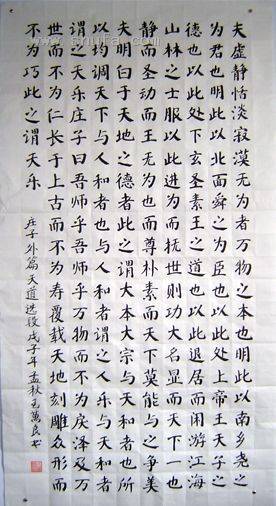 夫虚静恬淡寂漠无为者万物之本也明此以南乡尧之
为君也明此以北面舜之为臣也以此处上帝王天子之
德也以此处下玄圣素王之道也以此退居而闲游江海
山林之士服以此进为而抚世则功大名显而天下一也
静而圣动而王无为也而尊朴素而天下莫能与之争美
夫明白于天地之德者此之谓大本大宗与天和者也所
以均调天下与人和者也与人和者谓之人乐与天和者
谓之天乐庄子曰吾师乎吾师乎万物而不为戾泽及万
世而不为仁长于上古而不为寿覆载天地刻雕众形而
不为巧此之谓天乐
庄子外篇天道选段戊子年孟秋萬良书